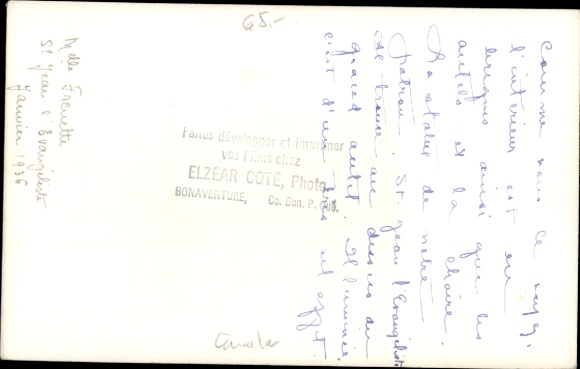 Comme vous le voyez,
l'intérieur est en
briques ainsi que les
autels et la chaire.
La statue de notre
Patron, St. Jean l'Evangéliste
se trouve au dessus du
grand autel. Illuminée,
c'est d'un très bel effet.
Melle Frenette
St Jean l'Evangéliste
Janvier 1936
65.-
Faites développer et imprimer
vos Films chez
ELZÉAR COTÉ, Photo
BONAVENTURE, Co. Bon. P. Qué.
Canada